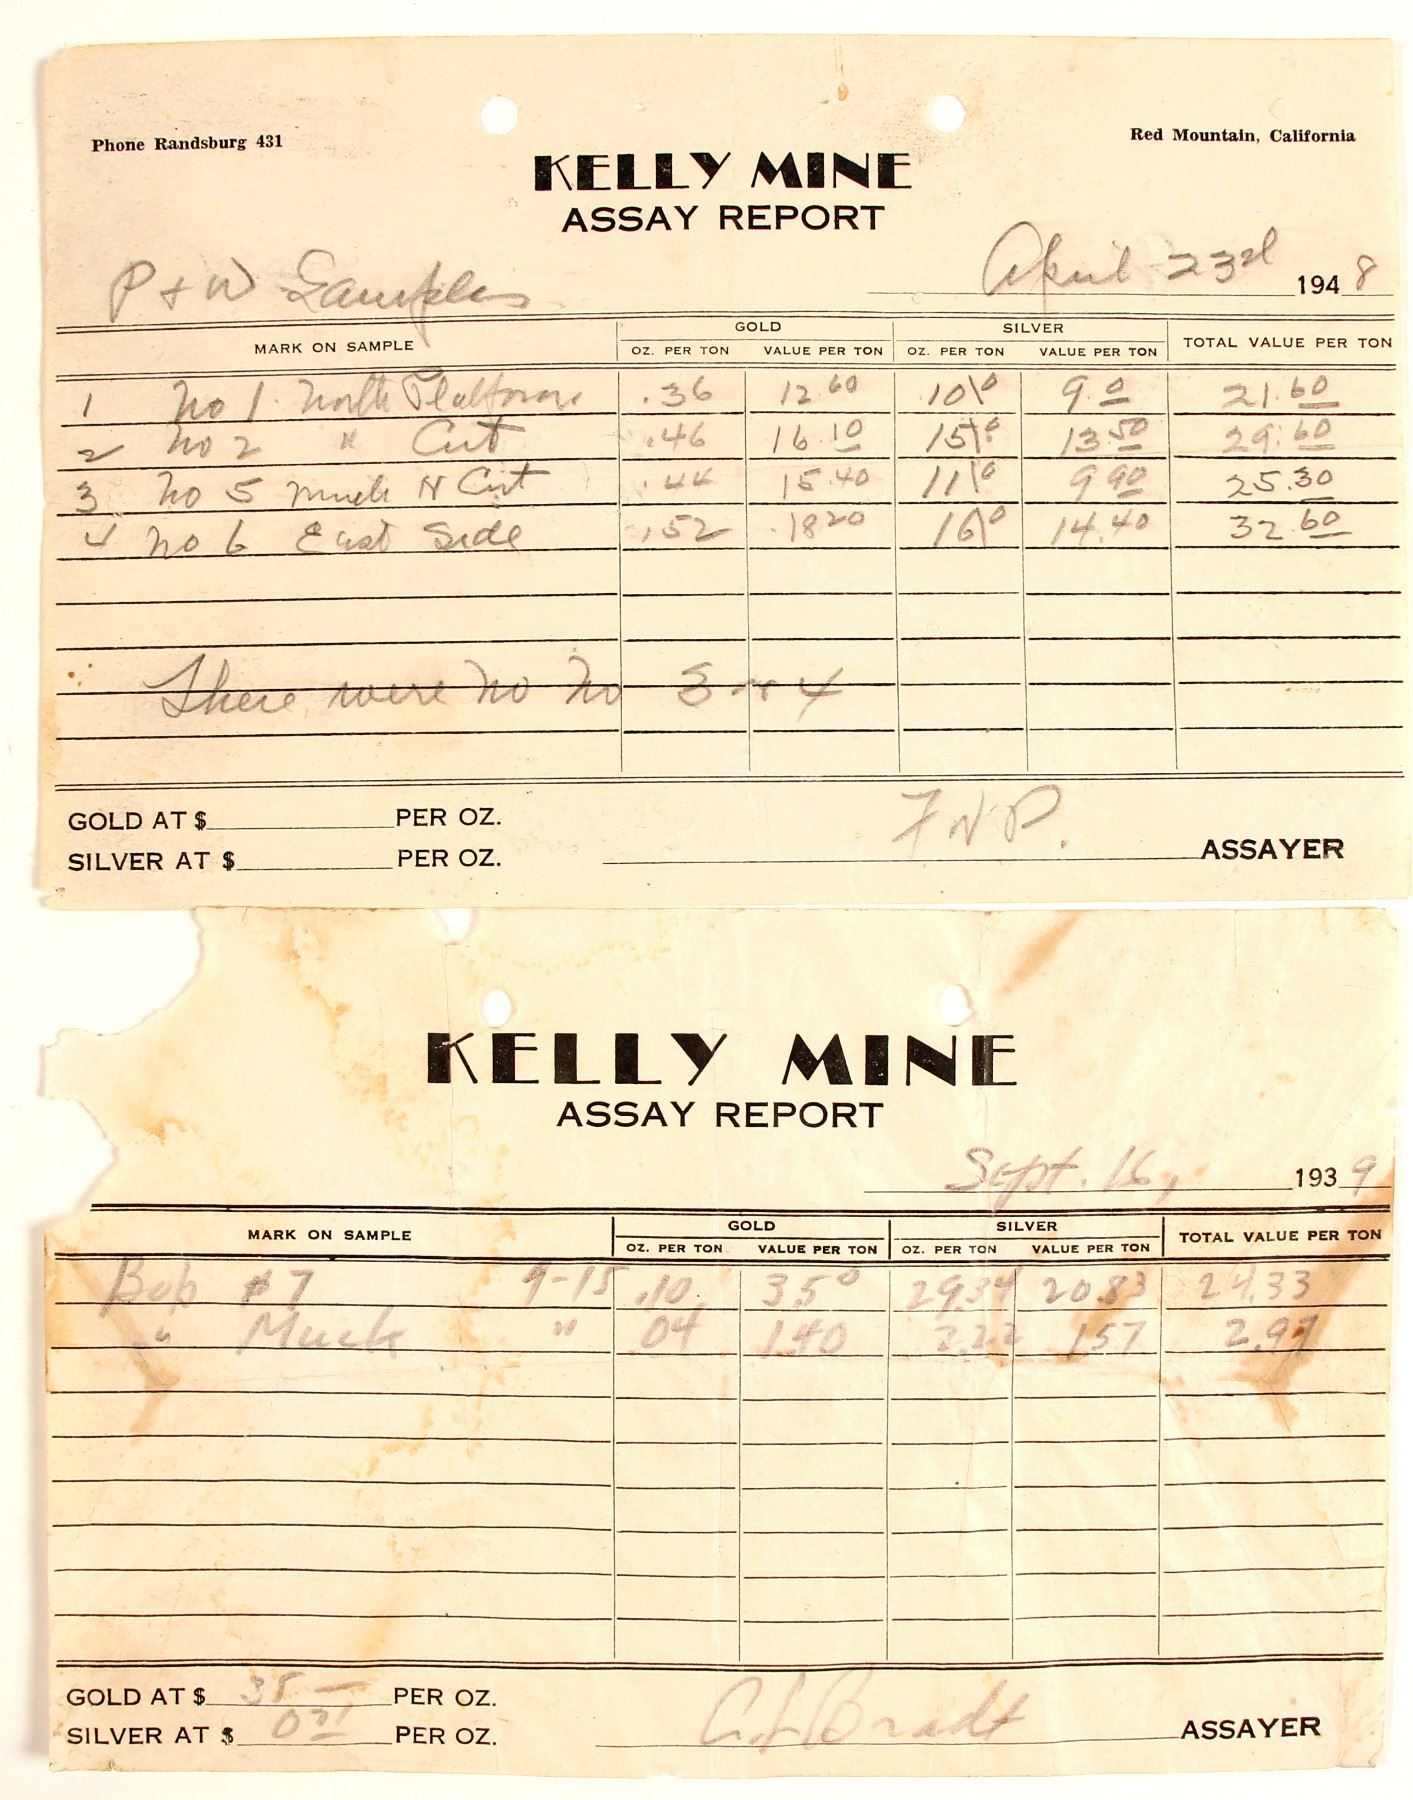 Phone Randsburg 431
Red Mountain, California
KELLY MINE
ASSAY REPORT
April 23rd 1948
P + W Samples
MARK ON SAMPLE GOLD SILVER TOTAL VALUE PER TON
OZ. PER TON VALUE PER TON OZ. PER TON VALUE PER TON
1 No 1 North Platform .36 12.60 10.0 9.0 21.60
2 No 2 " Cut .46 16.10 15.0 13.50 29.60
3 No 5 Muck N Cut .44 15.40 11.0 9.90 25.30
4 No 6 East Side .52 18.20 16.0 14.40 32.60
There were no No 3 or 4
GOLD AT $ PER OZ.
SILVER AT $ PER OZ.
F N P. ASSAYER
KELLY MINE
ASSAY REPORT
Sept. 16, 1939
MARK ON SAMPLE GOLD SILVER TOTAL VALUE PER TON
OZ. PER TON VALUE PER TON OZ. PER TON VALUE PER TON
Bob #7 9-15 .10 3.50 29.34 20.83 24.33
" Muck " .04 1.40 2.22 1.57 2.97
GOLD AT $ 35 — PER OZ.
SILVER AT $ 0 71 PER OZ.
Bradt ASSAYER